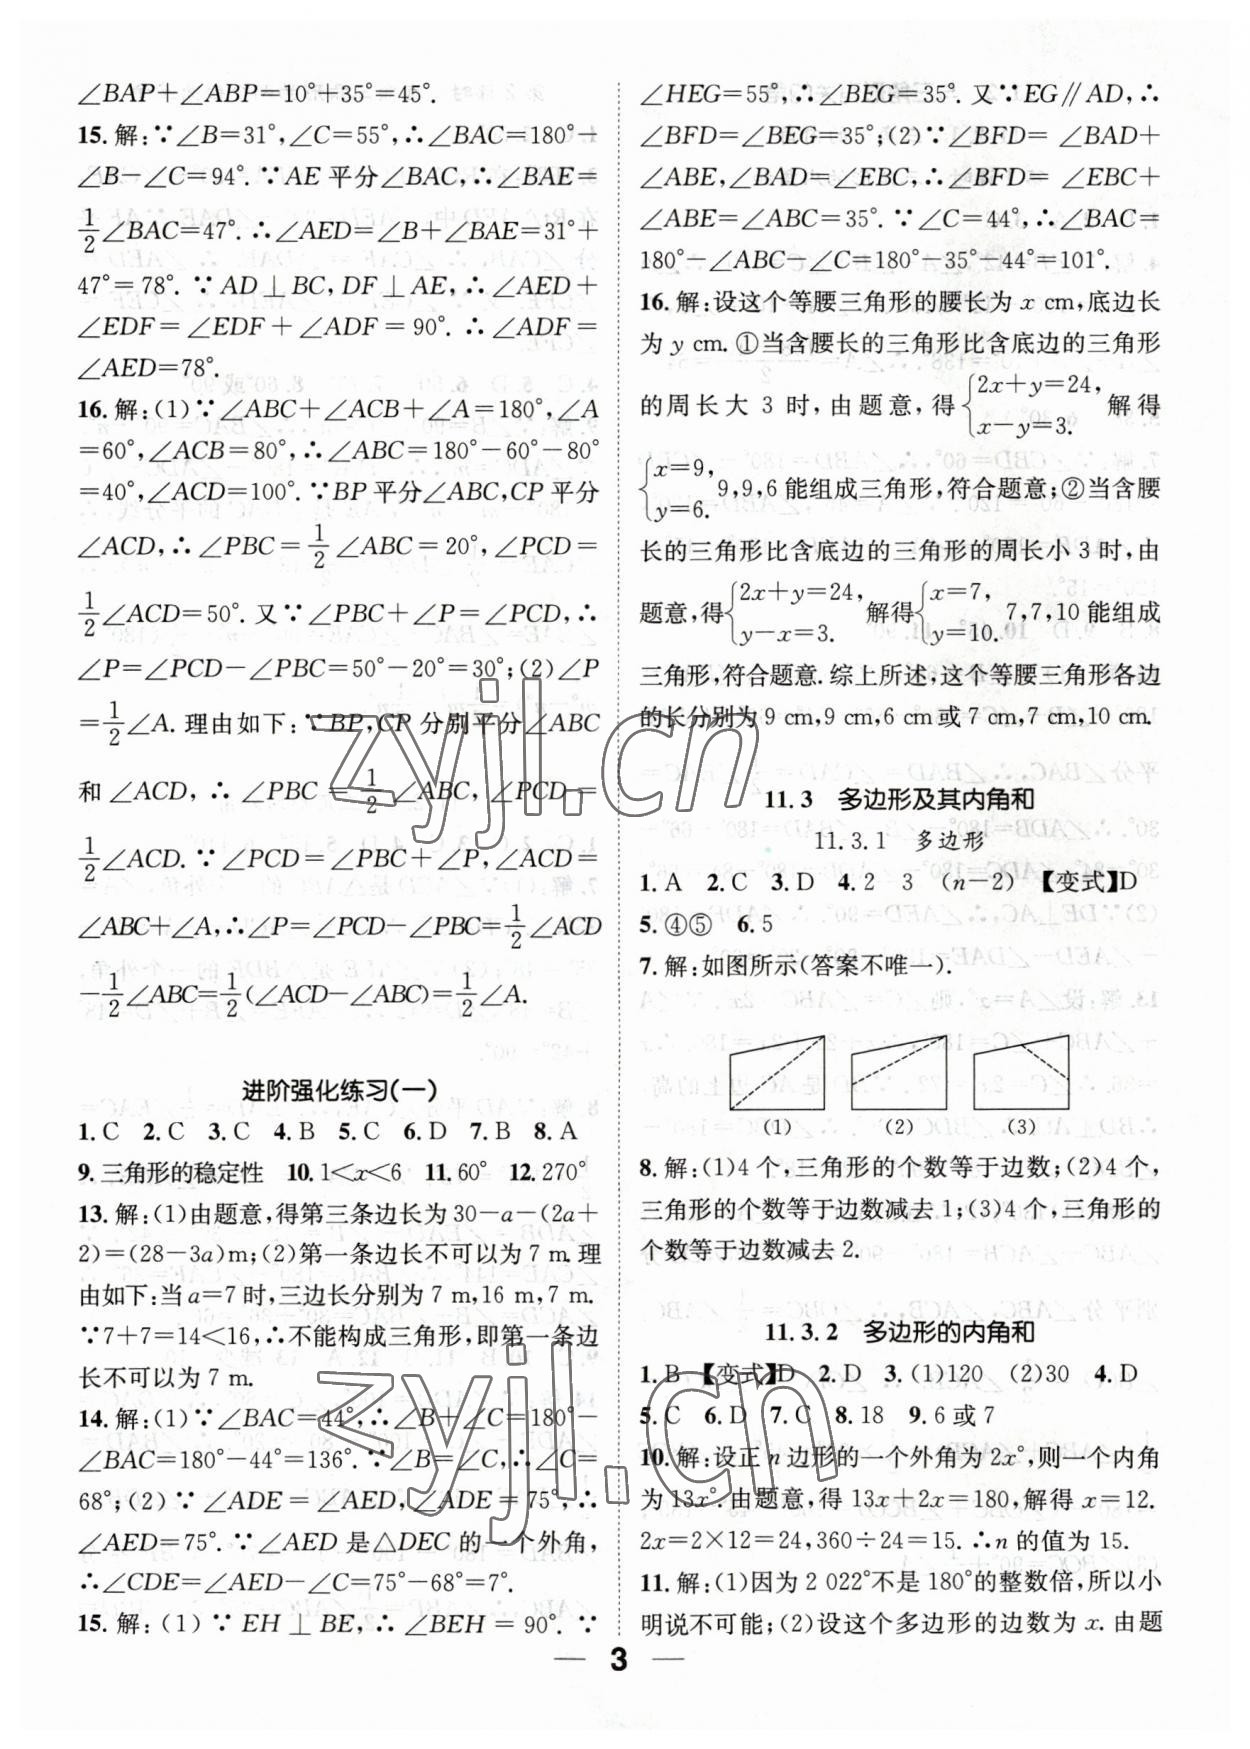 ∠BAP+∠ABP=10°+35°=45°.
15.解:∵∠B=31°,∠C=55°,∴∠BAC=180°-
∠B-∠C=94°.∵AE平分∠BAC,∴∠BAE=
1/2∠BAC=47°.∴∠AED=∠B+∠BAE=31°+
47°=78°.∵AD⊥BC,DF⊥AE,∴∠AED+
∠EDF=∠EDF+∠ADF=90°.∴∠ADF=
∠AED=78°.
16.解:(1)∵∠ABC+∠ACB+∠A=180°,∠A
=60°,∠ACB=80°,∴∠ABC=180°-60°-80°
=40°,∠ACD=100°.∵BP平分∠ABC,CP平分
∠ACD,∴∠PBC=1/2∠ABC=20°,∠PCD=
1/2∠ACD=50°.又∵∠PBC+∠P=∠PCD,∴
∠P=∠PCD-∠PBC=50°-20°=30°;(2)∠P
=1/2∠A.理由如下:∵BP,CP分别平分∠ABC
和∠ACD,∴∠PBC=1/2∠ABC,∠PCD=
1/2∠ACD.∵∠PCD=∠PBC+∠P,∠ACD=
∠ABC+∠A,∴∠P=∠PCD-∠PBC=1/2∠ACD
-1/2∠ABC=1/2(∠ACD-∠ABC)=1/2∠A.
进阶强化练习(一)
1.C 2.C 3.C 4.B 5.C 6.D 7.B 8.A
9.三角形的稳定性 10.1<x<6 11.60° 12.270°
13.解:(1)由题意,得第三条边长为30-a-(2a+
2)=(28-3a)m;(2)第一条边长不可以为7 m.理
由如下:当a=7时,三边长分别为7 m,16 m,7 m.
∵7+7=14<16,∴不能构成三角形,即第一条边
长不可以为7 m.
14.解:(1)∵∠BAC=44°,∴∠B+∠C=180°-
∠BAC=180°-44°=136°.∵∠B=∠C,∴∠C=
68°;(2)∵∠ADE=∠AED,∠ADE=75°,∴
∠AED=75°.∵∠AED是△DEC的一个外角,
∴∠CDE=∠AED-∠C=75°-68°=7°.
15.解:(1)∵EH⊥BE,∴∠BEH=90°.∵
∠HEG=55°,∴∠BEG=35°.又∵EG∥AD,∴
∠BFD=∠BEG=35°;(2)∵∠BFD=∠BAD+
∠ABE,∠BAD=∠EBC,∴∠BFD=∠EBC+
∠ABE=∠ABC=35°.∵∠C=44°,∴∠BAC=
180°-∠ABC-∠C=180°-35°-44°=101°.
16.解:设这个等腰三角形的腰长为x cm,底边长
为y cm.①当含腰长的三角形比含底边的三角形
的周长大3时,由题意,得{2x+y=24, x-y=3. 解得
{x=9, y=6. 9,9,6能组成三角形,符合题意;②当含腰
长的三角形比含底边的三角形的周长小3时,由
题意,得{2x+y=24, y-x=3. 解得{x=7, y=10. 7,7,10能组成
三角形,符合题意.综上所述,这个等腰三角形各边
的长分别为9 cm,9 cm,6 cm或7 cm,7 cm,10 cm.
11.3 多边形及其内角和
11.3.1 多边形
1.A 2.C 3.D 4.2 3 (n-2) 【变式】D
5.④⑤ 6.5
7.解:如图所示(答案不唯一).
(1) (2) (3)
8.解:(1)4个,三角形的个数等于边数;(2)4个,
三角形的个数等于边数减去1;(3)4个,三角形的
个数等于边数减去2.
11.3.2 多边形的内角和
1.B 【变式】D 2.D 3.(1)120 (2)30 4.D
5.C 6.D 7.C 8.18 9.6或7
10.解:设正n边形的一个外角为2x°,则一个内角
为13x°.由题意,得13x+2x=180,解得x=12.
2x=2×12=24,360÷24=15.∴n的值为15.
11.解:(1)因为2 022°不是180°的整数倍,所以小
明说不可能;(2)设这个多边形的边数为x.由题
— 3 —
zyjl.cn
zyjl.cn